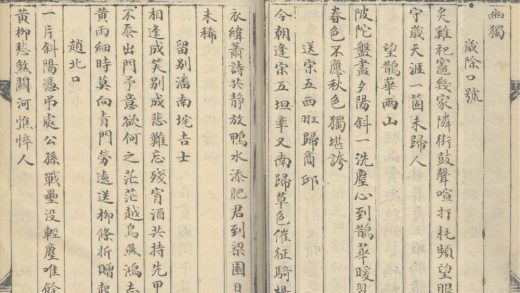 幽獨
歲除口號
炙雞祀竈幾家隣街鼓聲喧打耗頻望眼
守歲天涯一箇未歸人
望鵲華兩山
陂陀盤盡夕陽斜一洗塵心到鵲華暖翠
春色不應秋色獨堪誇
送宋五西歸商邱
今朝逢宋五坦率又南歸草色催征騎楊
衣緯蕭詩共靜放鴨水添肥君到梁園日
未稀
留別潘南垞吉士
相逢成笑別成悲難忘殘宵酒共持先甲
不忝出門予意欲何之茫茫越鳥燕鴻志
黃雨細時莫向青門勞遠送柳條折贈起
趙北口
一片斜陽憑弔處公孫戰壘沒輕塵唯餘
黃柳愁煞關河憔悴人